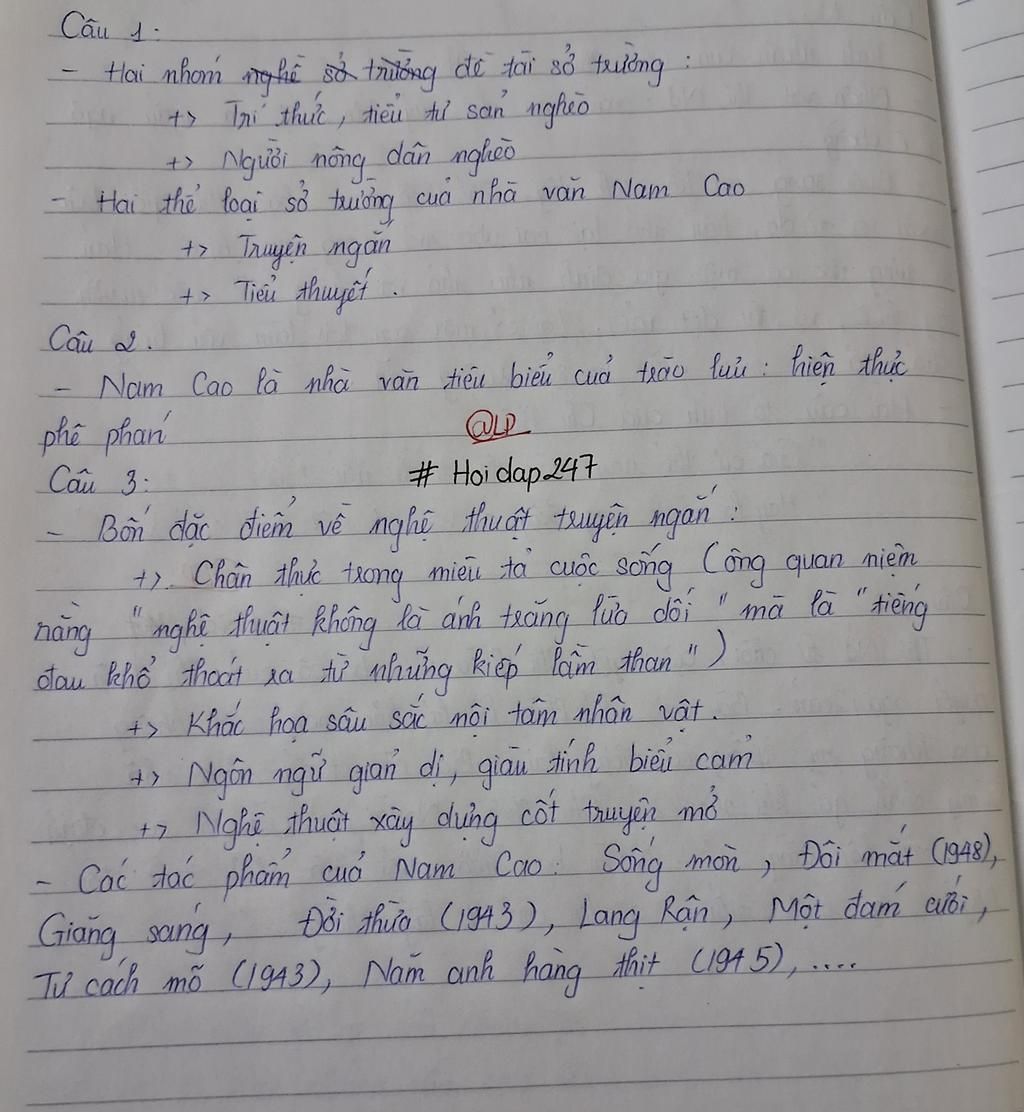 Câu 1:
- Hai nhóm nghề sở trường đề tài sở trường :
+> Trí thức, tiểu tư sản nghèo
+> Người nông dân nghèo
- Hai thể loại sở trường của nhà văn Nam Cao
+> Truyện ngắn
+> Tiểu thuyết .
Câu 2.
- Nam Cao là nhà văn tiêu biểu của trào lưu : hiện thực
phê phán
@LP
# Hoidap247
Câu 3:
- Bốn đặc điểm về nghệ thuật truyện ngắn :
+>. Chân thực trong miêu tả cuộc sống (ông quan niệm
rằng "nghệ thuật không là ánh trăng lừa dối" mà là "tiếng
đau khổ thoát ra từ những kiếp lầm than")
+> Khắc họa sâu sắc nội tâm nhân vật.
+> Ngôn ngữ giản dị, giàu tính biểu cảm
+> Nghệ thuật xây dựng cốt truyện mở
- Các tác phẩm của Nam Cao: Sống mòn, Đôi mắt (1948),
Giăng sáng, Đời thừa (1943), Lang Rận, Một đám cưới,
Tư cách mõ (1943), Năm anh hàng thịt (1945), ....